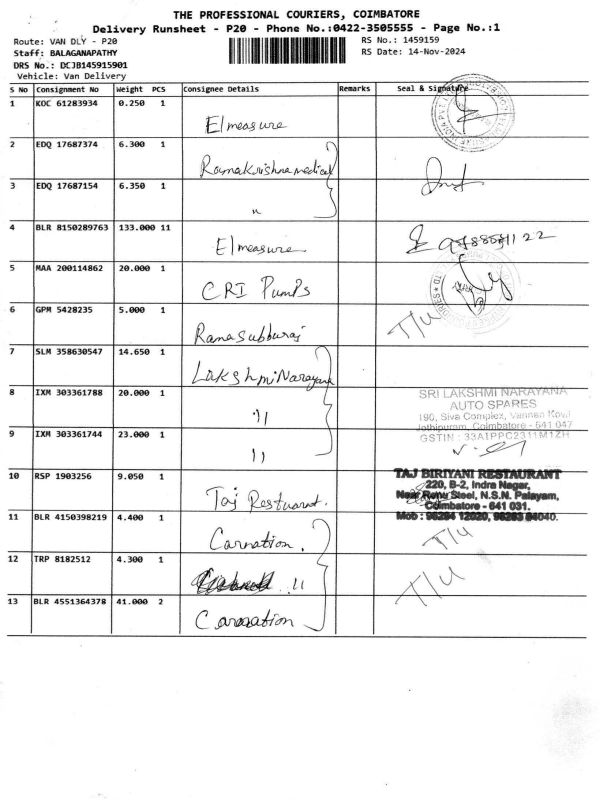 THE PROFESSIONAL COURIERS, COIMBATORE
Delivery Runsheet - P20 - Phone No.:0422-3505555 - Page No.:1
Route: VAN DLY - P20
RS No.: 1459159
Staff: BALAGANAPATHY
RS Date: 14-Nov-2024
DRS No.: DCJB145915901
Vehicle: Van Delivery
S No Consignment No Weight PCS Consignee Details Remarks Seal & Signature
1 KOC 61283934 0.250 1 Elmeasure
2 EDQ 17687374 6.300 1 Ramakrishna medical
3 EDQ 17687154 6.350 1 "
4 BLR 8150289763 133.000 11 Elmeasure
5 MAA 200114862 20.000 1 CRI Pumps
6 GPM 5428235 5.000 1 Ramasubburaj T/u
7 SLM 358630547 14.650 1 Lakshmi Narayana
8 IXM 303361788 20.000 1 "
SRI LAKSHMI NARAYANA
AUTO SPARES
190, Siva Complex, Vannan Kovil
Jothipuram, Coimbatore - 641 047
GSTIN : 33AIPPC2311M1ZH
9 IXM 303361744 23.000 1 "
10 RSP 1903256 9.050 1 Taj Restuarant.
TAJ BIRIYANI RESTAURANT
220, B-2, Indra Nagar,
Near Renu Steel, N.S.N. Palayam,
Coimbatore - 641 031.
11 BLR 4150398219 4.400 1 Carnation. T/u
12 TRP 8182512 4.300 1 " T/u
13 BLR 4551364378 41.000 2 Carnation